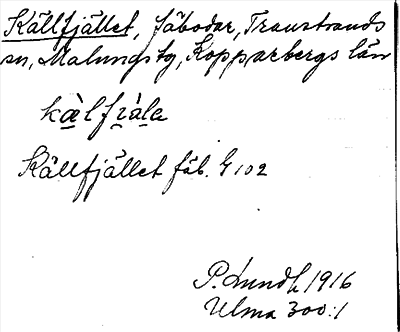 Källfjället, fäbodar, Transtrands
sn, Malungs tg, Kopparbergs län
kæ̀lfɩ̀ala
Källfjället fäb. G 102
P. Lundh 1916
Ulma 300:1